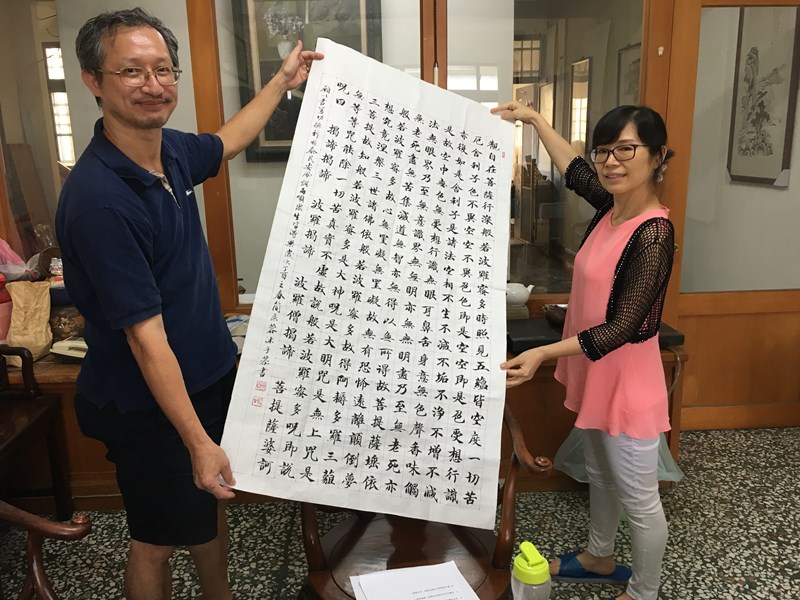 觀自在菩薩行深般若波羅蜜多時照見五蘊皆空度一切苦
厄舍利子色不異空空不異色色即是空空即是色受想行識
亦復如是舍利子是諸法空相不生不滅不垢不淨不增不減
是故空中無色無受想行識無眼耳鼻舌身意無色聲香味觸
法無眼界乃至無意識界無無明亦無無明盡乃至無老死亦
無老死盡無苦集滅道無智亦無得以無所得故菩提薩埵依
般若波羅蜜多故心無罣礙無罣礙故無有恐怖遠離顛倒夢
想究竟涅槃三世諸佛依般若波羅蜜多故得阿耨多羅三藐
三菩提故知般若波羅蜜多是大神呪是大明呪是無上呪是
無等等呪能除一切苦真實不虛故說般若波羅蜜多呪即說
呪曰 揭諦揭諦 波羅揭諦 波羅僧揭諦 菩提薩婆訶
願以書寫功德 民安風調雨順眾生 丁酉立春 書